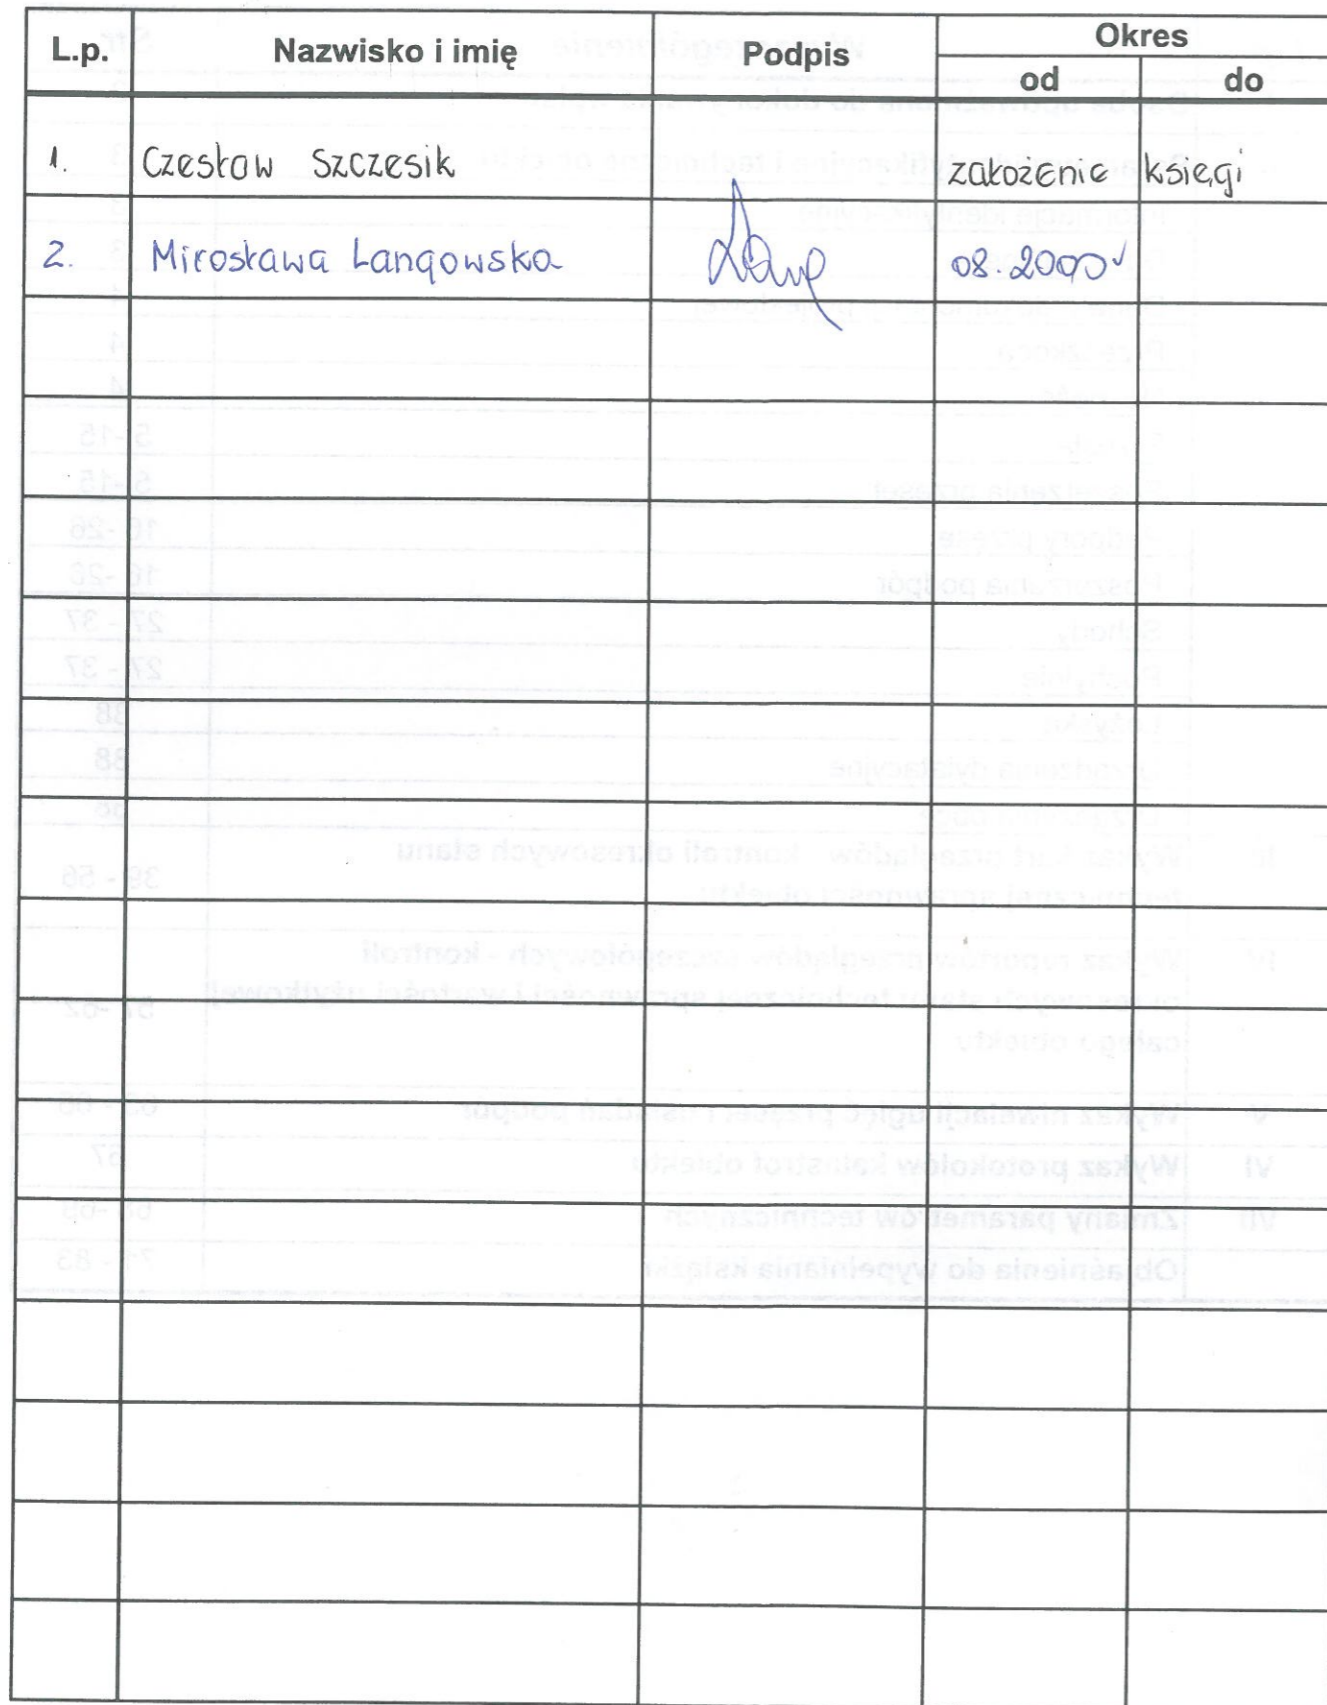 L.p. Nazwisko i imię Podpis Okres
od do
1. Czesław Szczesik założenie księgi
2. Mirosława Langowska 08.2000